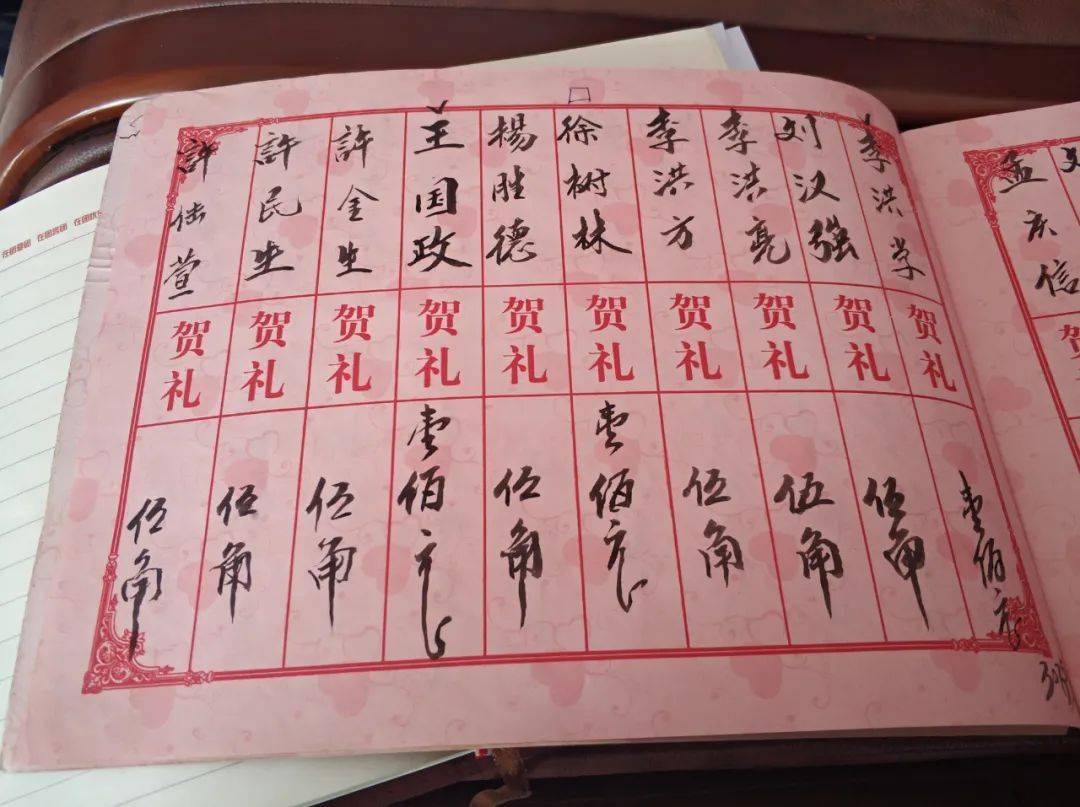 孟庆信
贺
李洪学 贺礼 壹佰元
刘汉强 贺礼 伍角
李洪亮 贺礼 伍角
李洪方 贺礼 伍角
徐树林 贺礼 壹佰元
楊胜德 贺礼 伍角
王国政 贺礼 壹佰元
許金生 贺礼 伍角
許民生 贺礼 伍角
許萱 贺礼 伍角